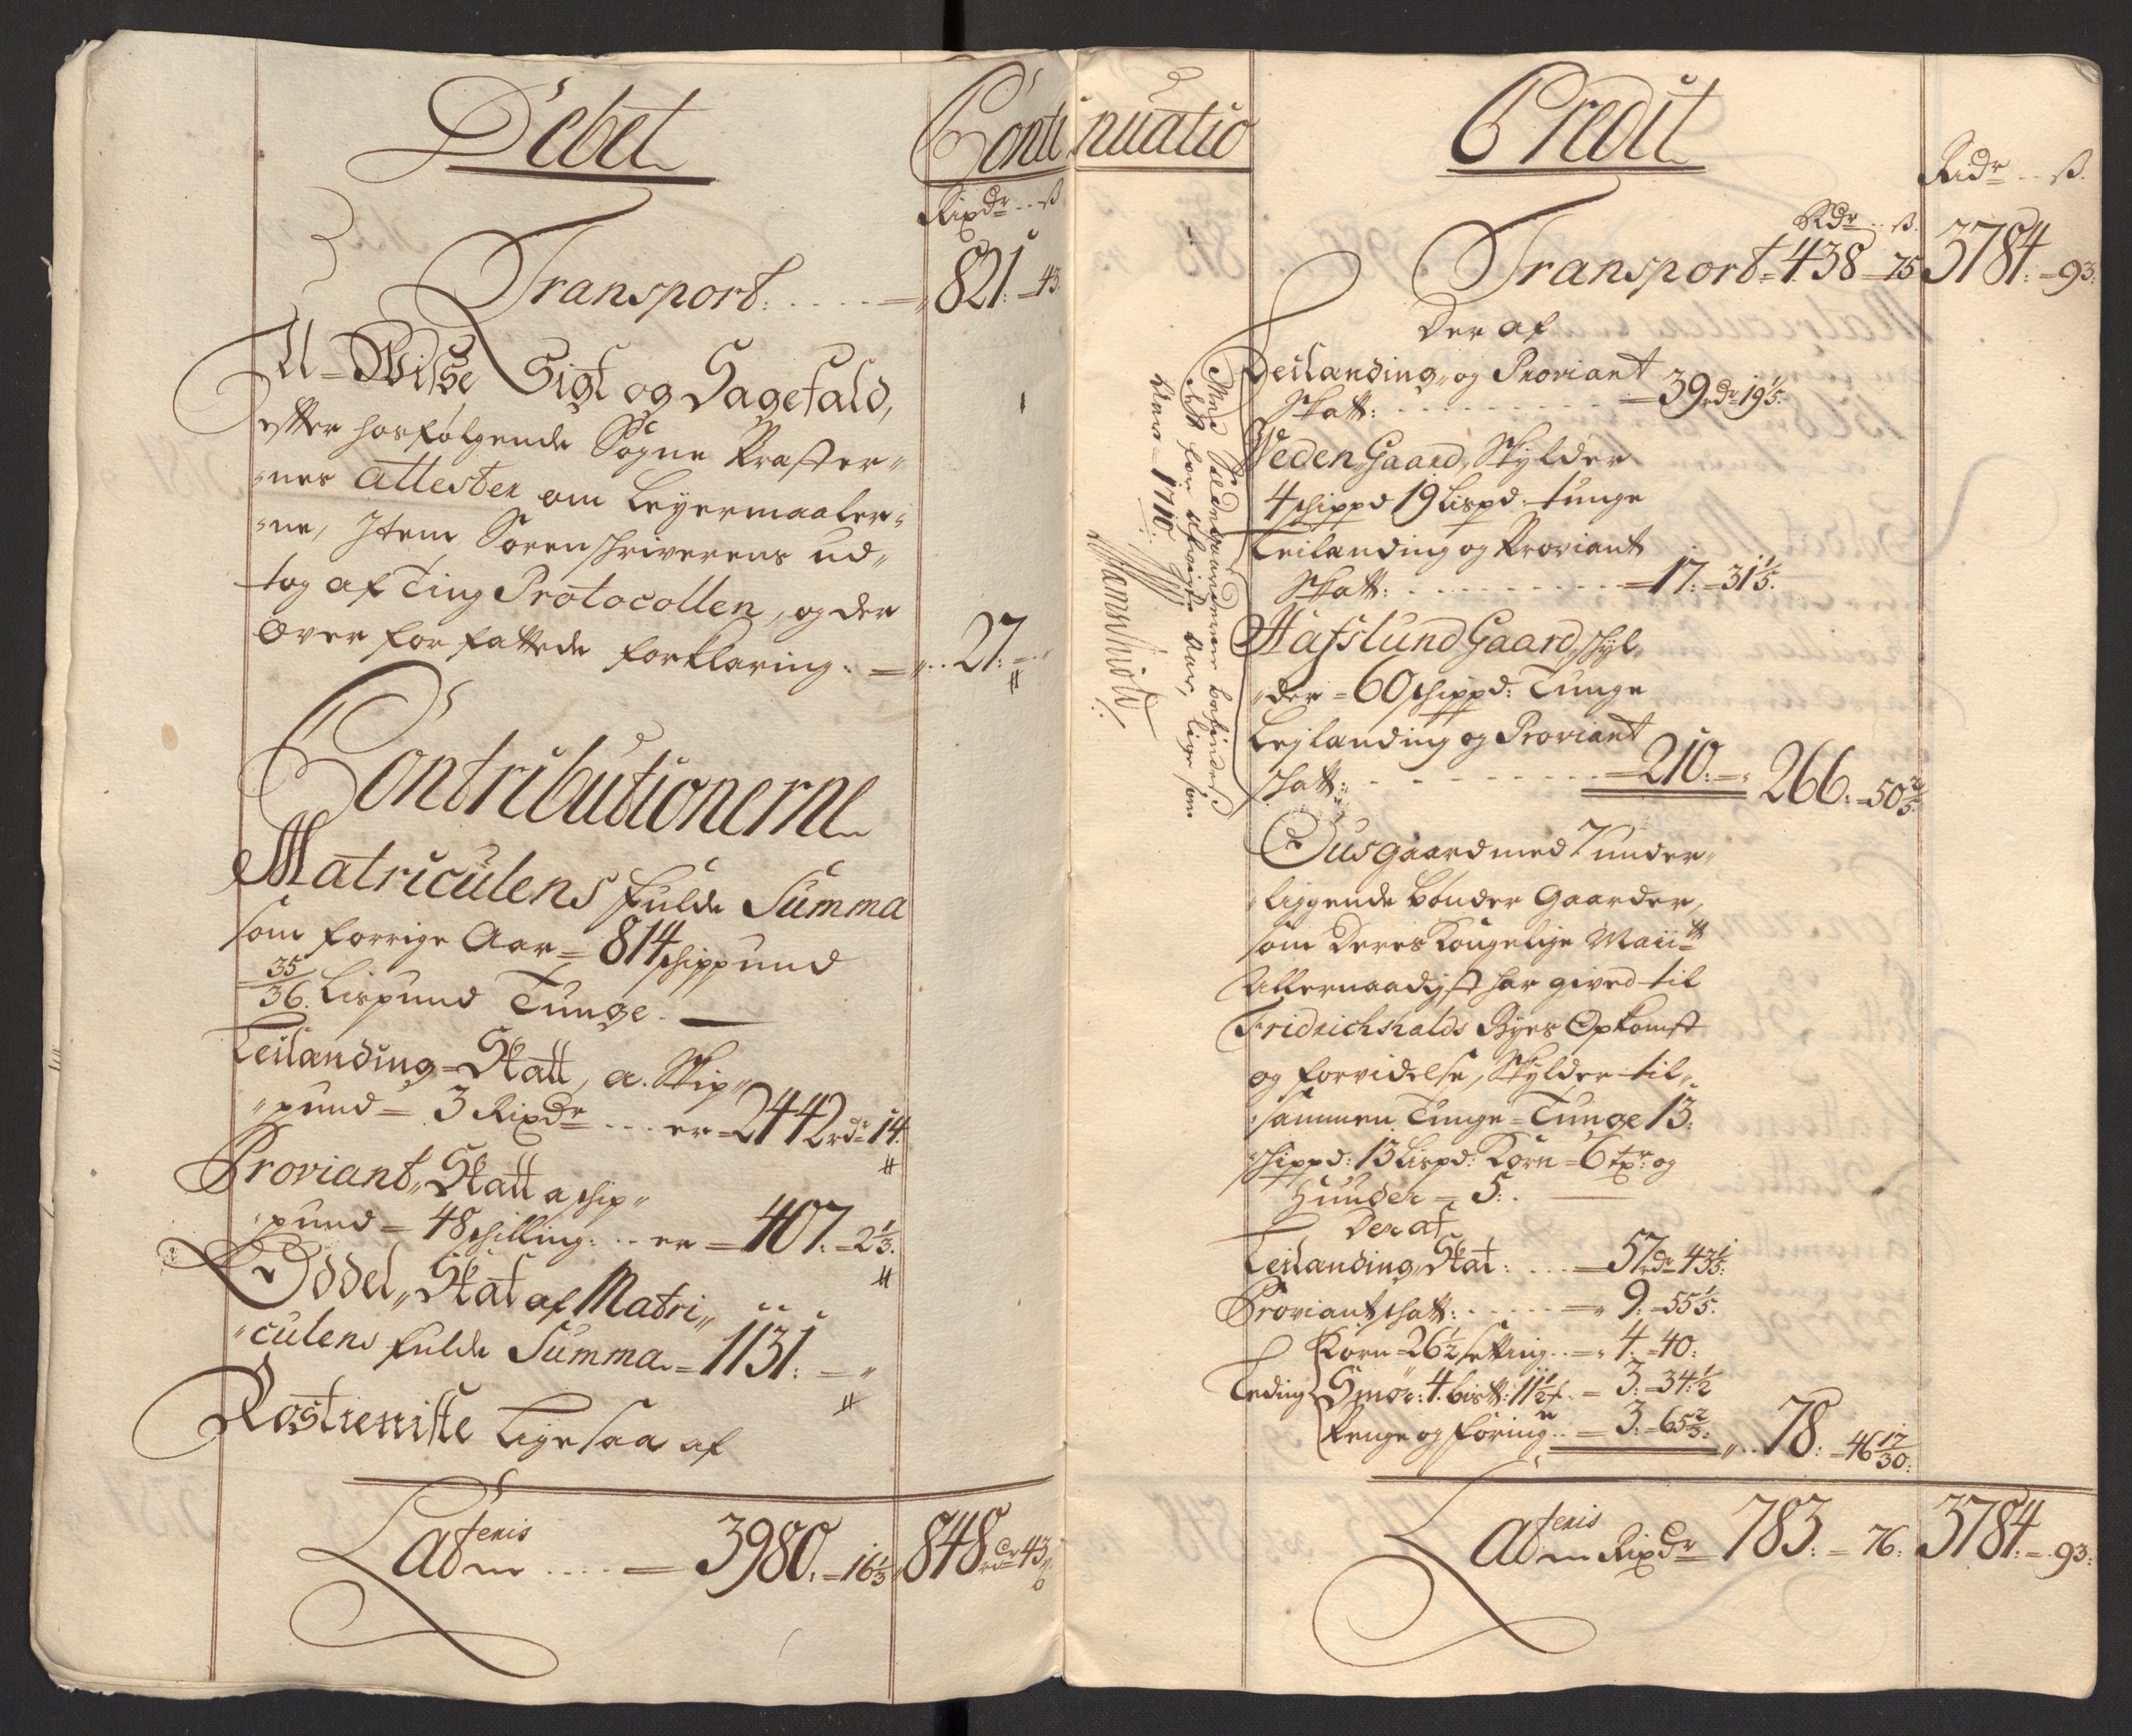 Debet
Continuatio
Rixdr .. ß
Transport: ..... = 821: - 43
U-Wisse Sigt og Sagefald,
efter hosfølgende Sogne Præster„
„nes attester om Leyermaaler„
„ne, Item Sorenschriverens ud„
tog af Ting Protocollen, og der
over forfattede forklaring: = „.. 27: - „
Contributionerne
Matriculens fulde Summa
som forrige Aar = 814 schippund
35/36 Lispund Tunge. —
Leilanding-Skatt, a. Skip„
„pund = 3 Rixdr ... er = 2442 rdr 14
Proviant„ Skatt a schip„
„pund = 48 schilling: .. er = 407: - 2 1/3.
Oddel„ Skat af Matri„
„culens fulde Summa = 1131: - „
Rostieniste Ligesaa af
Lateris .... = 3980. - 16 1/3 848 rdr 43
Credit
Ridr .. ß.
Rdr .. ß.
Transport = 438 - 75 3784: - 93:
Der af
Leilanding„ og Proviant
Skatt: ........ = 39 rdr 19 1/5.
Weden Gaard, Skylder
4 schippd 19 Lispd. tunge
Leilanding og Proviant
Skatt: ........ = 17: - 31 1/5.
Hafslund Gaard, schyl„
„der = 60 schippd: Tunge
Lejlanding og Proviant
schatt: ........ = 210: - „ 266: - 50 2/5.
Ous gaard med 7 under„
liggende bonder Gaarder,
som Deres Kongelige Maiitt
Allernaadigst har gived til
Fridrichshalds Byes Opkomst
og forvidelse, Skylder til„
„sammen Tunge = Tunge 13:
schippd: 13 Lispd: Korn = 6 tyr: og
Huuder = 5: . —
Der af
Leilanding Skat: ... = 57 rdr 43 1/5:
Proviant schatt: ..... = „ 9: - 55 1/5.
Korn = 26 1/2 setting .. = „ 4: - 40:
Teding Smör: 4. bistt: 11 1/2 .. = 3: - 34: 1/2
Penge og foring .. = 3: - 65 2/3: „ .. 78: - 46 17/30:
Lateris Rixdr 783: - 76: 3784: - 93:
Aar = 1710: